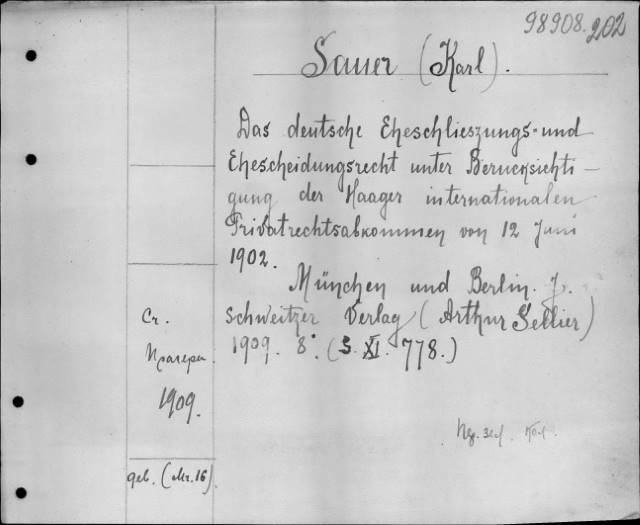 98908.202
Sauer (Karl).
Das deutsche Eheschlieszungs- und
Ehescheidungsrecht unter Berucksichti-
gung der Haager internationalen
Privatrechtsabkommen von 12 Juni
1902.
München und Berlin. J.
Schweitzer Verlag (Arthur Sellier)
1909. 8°. (S. XI. 778.)
Cr.
1909.
geb. (Mr. 16).